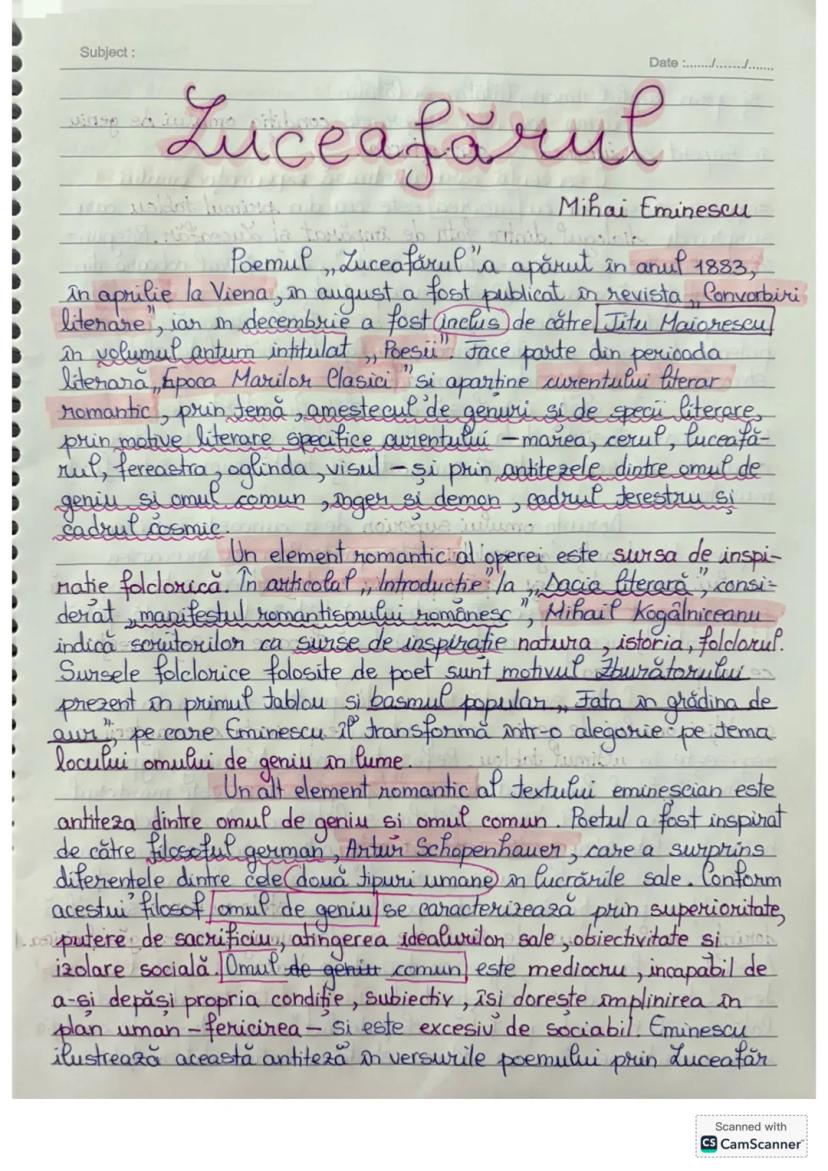 Subject :
Date :....../......./.......
Luceafărul
Mihai Eminescu
Poemul „Luceafărul" a apărut în anul 1883,
în aprilie la Viena, în august a fost publicat în revista „Convorbiri
literare", iar în decembrie a fost inclus de către Titu Maiorescu
în volumul antum intitulat „Poesii". Face parte din perioada
literară „Epoca Marilor Clasici" și aparține curentului literar
romantic, prin temă, amestecul de genuri și de specii literare,
prin motive literare specifice curentului – marea, cerul, luceafă-
rul, fereastra, oglinda, visul – și prin antitezele dintre omul de
geniu și omul comun, înger și demon, cadrul terestru și
cadrul cosmic.
Un element romantic al operei este sursa de inspi-
rație folclorică. În articolul „Introducție" la „Dacia literară", consi-
derat „manifestul romantismului românesc", Mihail Kogălniceanu
indică scriitorilor ca surse de inspirație natura, istoria, folclorul.
Sursele folclorice folosite de poet sunt motivul Zburătorului
prezent în primul tablou și basmul popular „Fata în grădina de
aur", pe care Eminescu îl transformă într-o alegorie pe tema
locului omului de geniu în lume.
Un alt element romantic al textului eminescian este
antiteza dintre omul de geniu și omul comun. Poetul a fost inspirat
de către filosoful german, Artur Schopenhauer, care a surprins
diferențele dintre cele două tipuri umane în lucrările sale. Conform
acestui filosof omul de geniu se caracterizează prin superioritate,
putere de sacrificiu, atingerea idealurilor sale, obiectivitate și
izolare socială. Omul de geniu comun este mediocru, incapabil de
a-și depăși propria condiție, subiectiv, își dorește împlinirea în
plan uman – fericirea – și este excesiv de sociabil. Eminescu
ilustrează această antiteză în versurile poemului prin Luceafăr
Scanned with
CS CamScanner